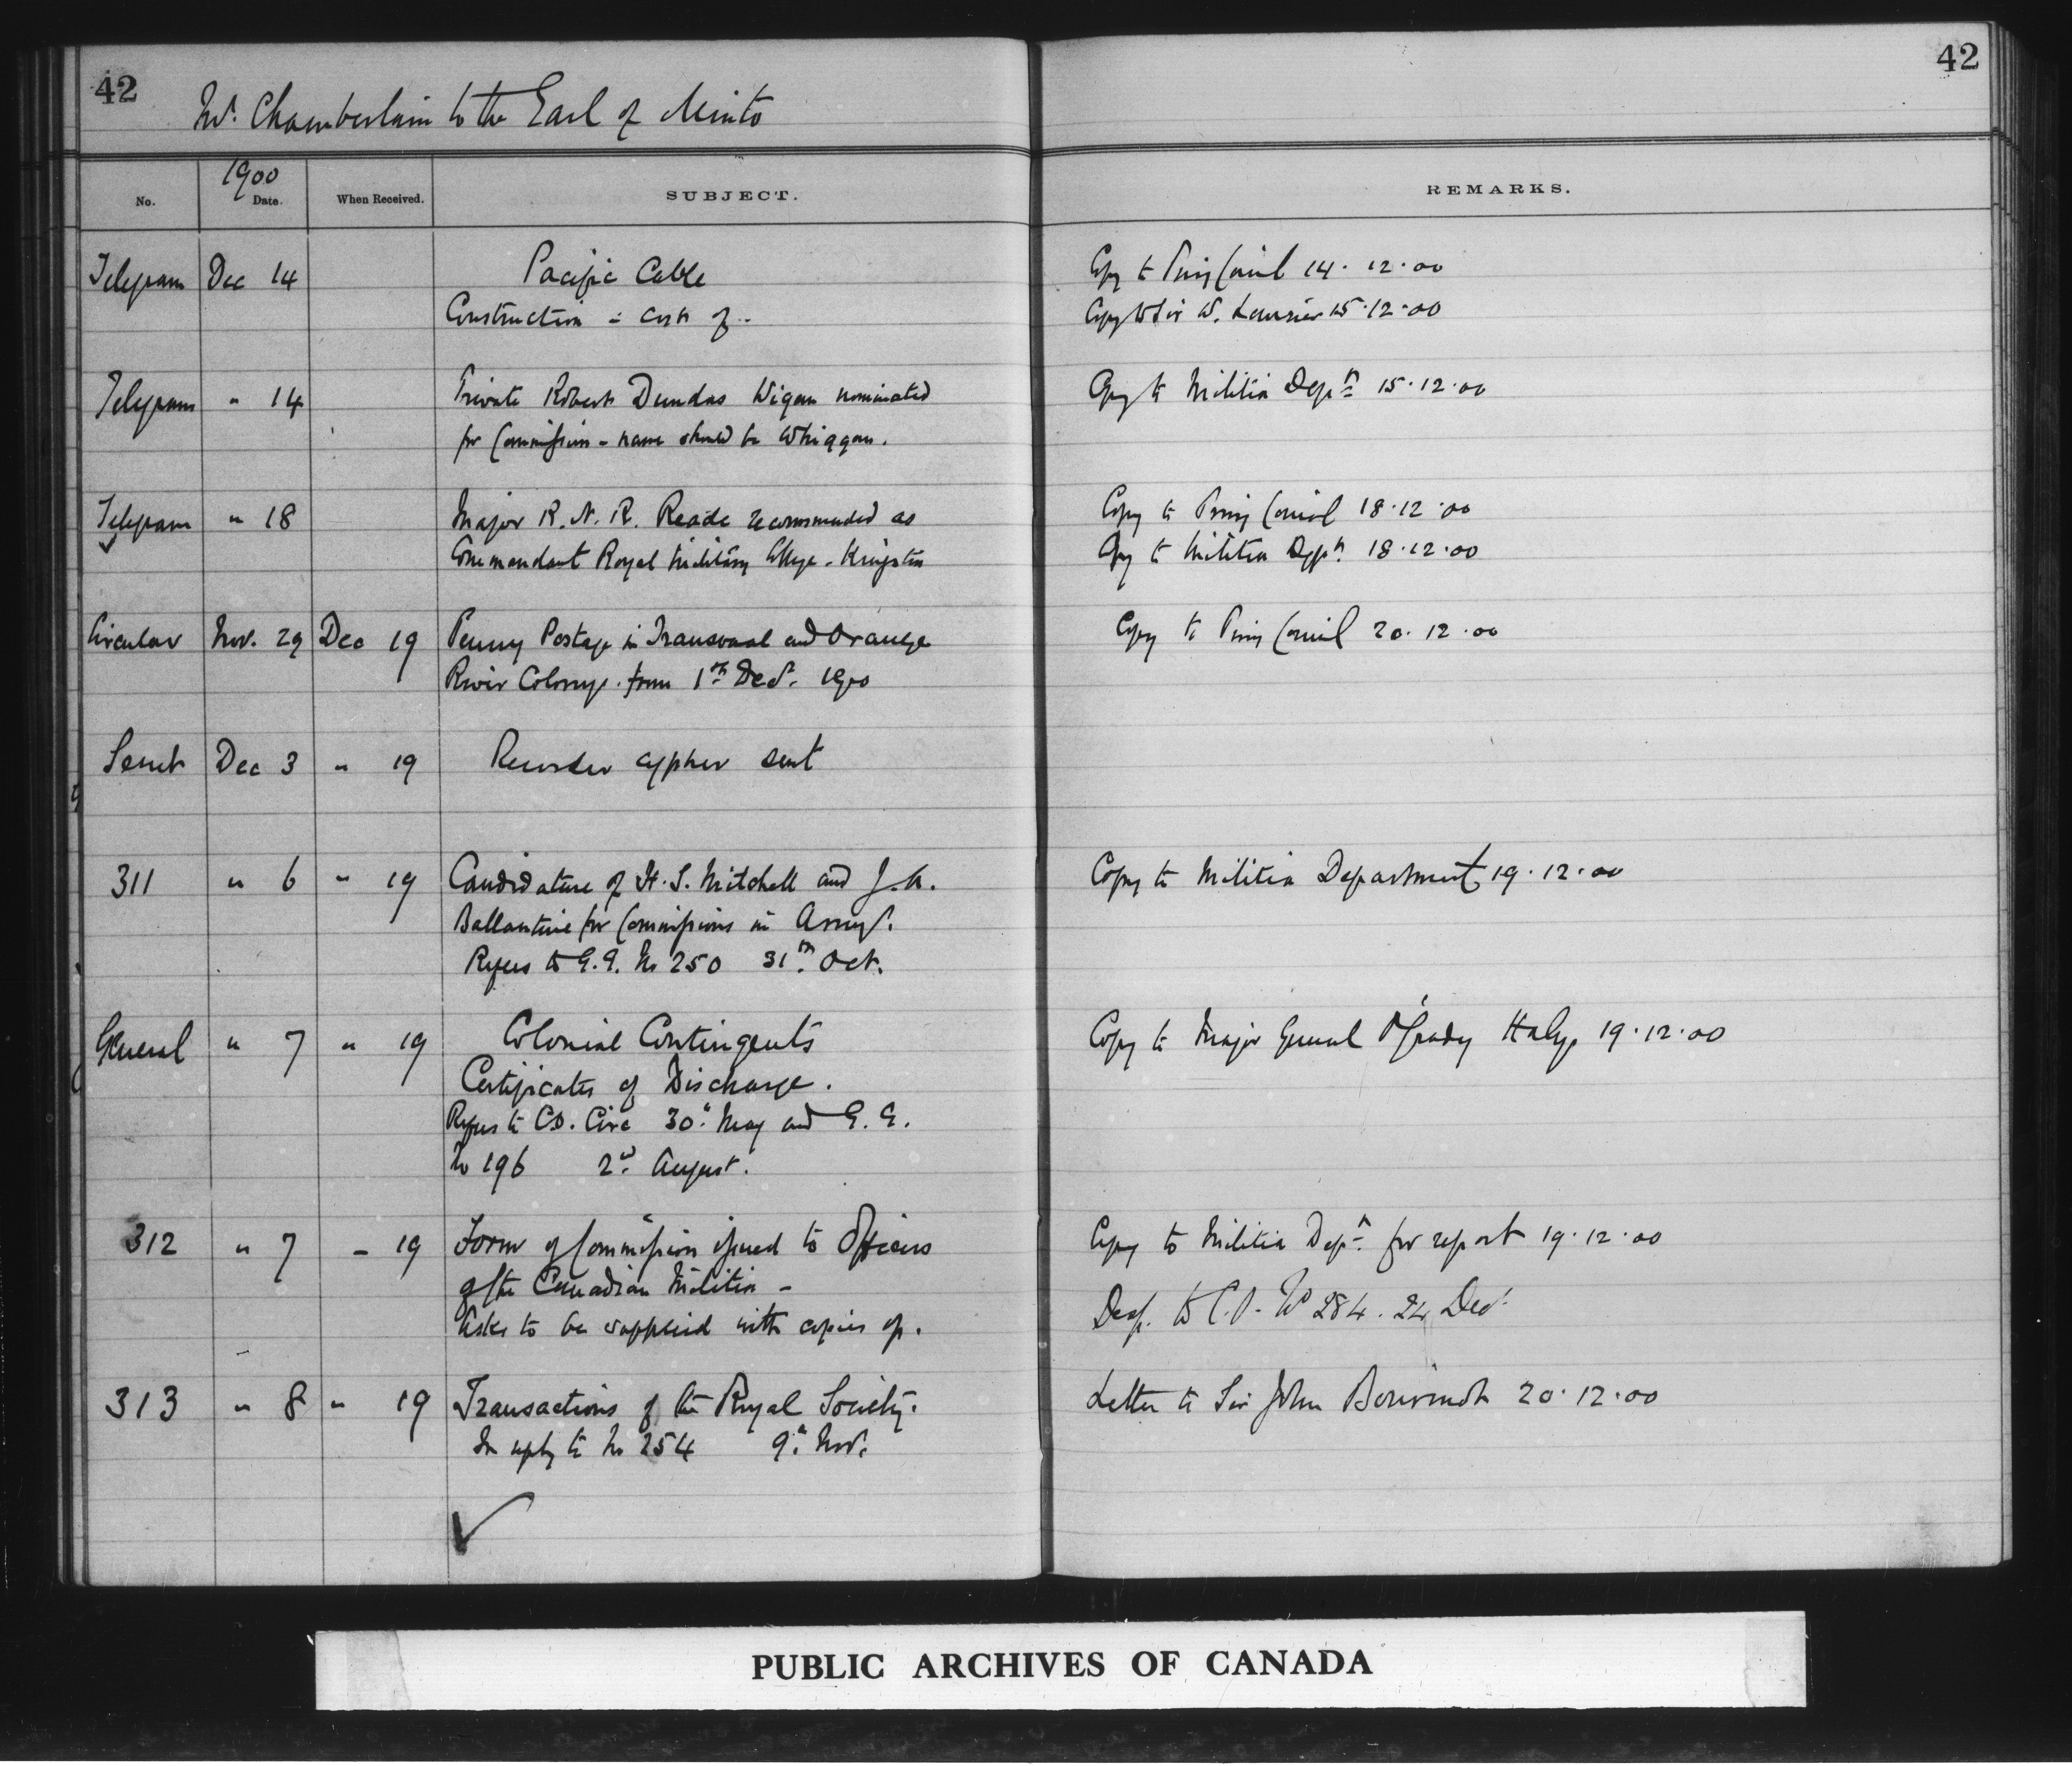 42
42
Mr. Chamberlain to the Earl of Minto
1900
No. Date. When Received. SUBJECT. REMARKS.
Telegram Dec 14 Pacific Cable Copy to Privy Council 14.12.00
Construction - cost of - Copy to Sir W. Laurier 15.12.00
Telegram " 14 Private Robert Dundas Wigan nominated Copy to Militia Dept. 15.12.00
for Commission - name should be Whiggan.
Telegram " 18 Major R. N. R. Reade recommended as Copy to Privy Council 18.12.00
Commandant Royal Military College - Kingston Copy to Militia Dept. 18.12.00
Circular Nov. 29 Dec 19 Penny Postage in Transvaal and Orange Copy to Privy Council 20.12.00
River Colony. from 1st Decr. 1900
Secret Dec 3 " 19 Recorder cypher sent
311 " 6 " 19 Candidature of H. S. Mitchell and J. A. Copy to Militia Department 19.12.00
Ballantine for Commissions in Army.
Refers to G.G. No 250 31st Oct.
General " 7 " 19 Colonial Contingents Copy to Major General O'Grady Haly 19.12.00
Certificates of Discharge.
Refers to C.O. Circ 30th May and G. G.
No 196 2nd August.
312 " 7 - 19 Form of Commission issued to Officers Copy to Militia Dept. for report 19.12.00
of the Canadian Militia -
Desp. to C.O. No 284. 24 Decr.
Asks to be supplied with copies of.
313 " 8 " 19 Transactions of the Royal Society. Letter to Sir John Bourinot 20.12.00
In reply to No 254 9th Nov.
PUBLIC ARCHIVES OF CANADA